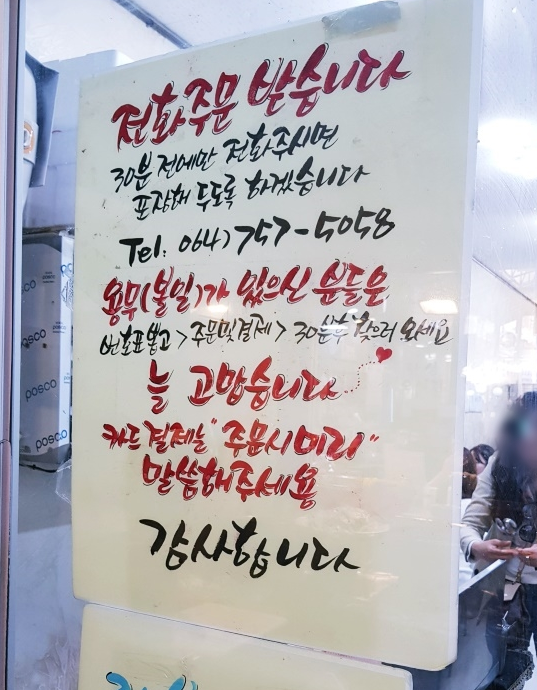 전화주문 받습니다
30분 전에만 전화주시면
포장해 두도록 하겠습니다
Tel: 064) 757-5058
용무(볼일)가 있으신 분들은
번호표뽑고 > 주문및결제 > 30분후 찾으러 오세요
늘 고맙습니다
카드결제는 "주문시미리"
말씀해주세용
감사합니다
posco
posco
posco
posco